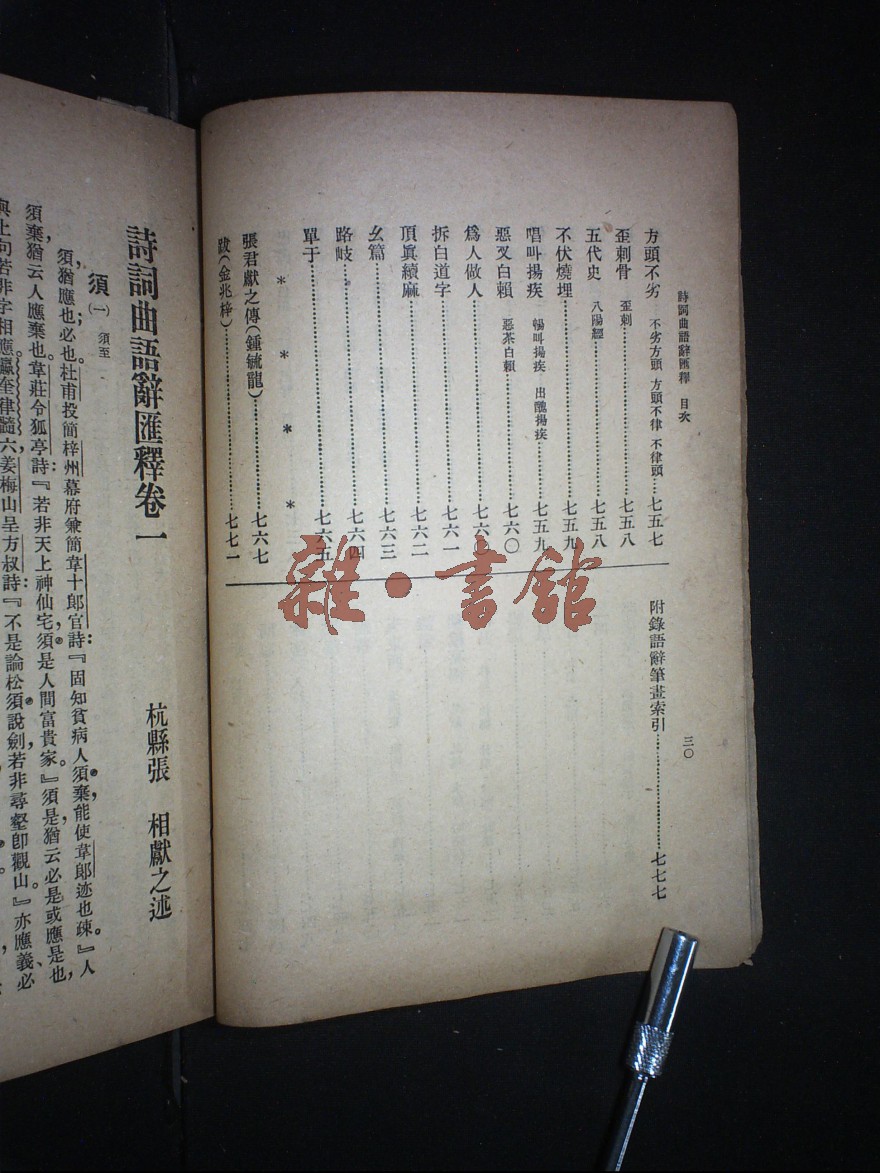 詩詞曲語辭匯釋　目次
三〇
方頭不劣　不劣方頭　方頭不律　不律頭…七五七
歪刺骨　歪刺…七五八
五代史　八陽經…七五八
不伏燒埋…七五九
唱叫揚疾　暢叫揚疾　出醜揚疾…七五九
惡叉白賴　惡茶白賴…七六〇
爲人做人…七六〇
拆白道字…七六一
頂眞續麻…七六二
幺篇…七六三
路岐…七六四
單于…七六五
＊　＊　＊　＊
張君獻之傳(鍾毓龍)…七六七
跋(金兆梓)…七七一
附錄語辭筆畫索引…七七七
詩詞曲語辭匯釋卷一
杭縣張　相獻之述
須(一)　須至
須，猶應也；必也。杜甫投簡梓州幕府兼簡韋十郎官詩：『固知貧病人須棄，能使韋郎迹也疎。』人
須棄，猶云人應棄也。韋莊令狐亭詩：『若非天上神仙宅，須是人間富貴家。』須是，猶云必是或應是也，
與上句若非字相應。瀛奎律髓六，姜梅山呈方叔詩：『不是論松須說劍，若非尋壑卽觀山。』亦應義、必
雜·書館